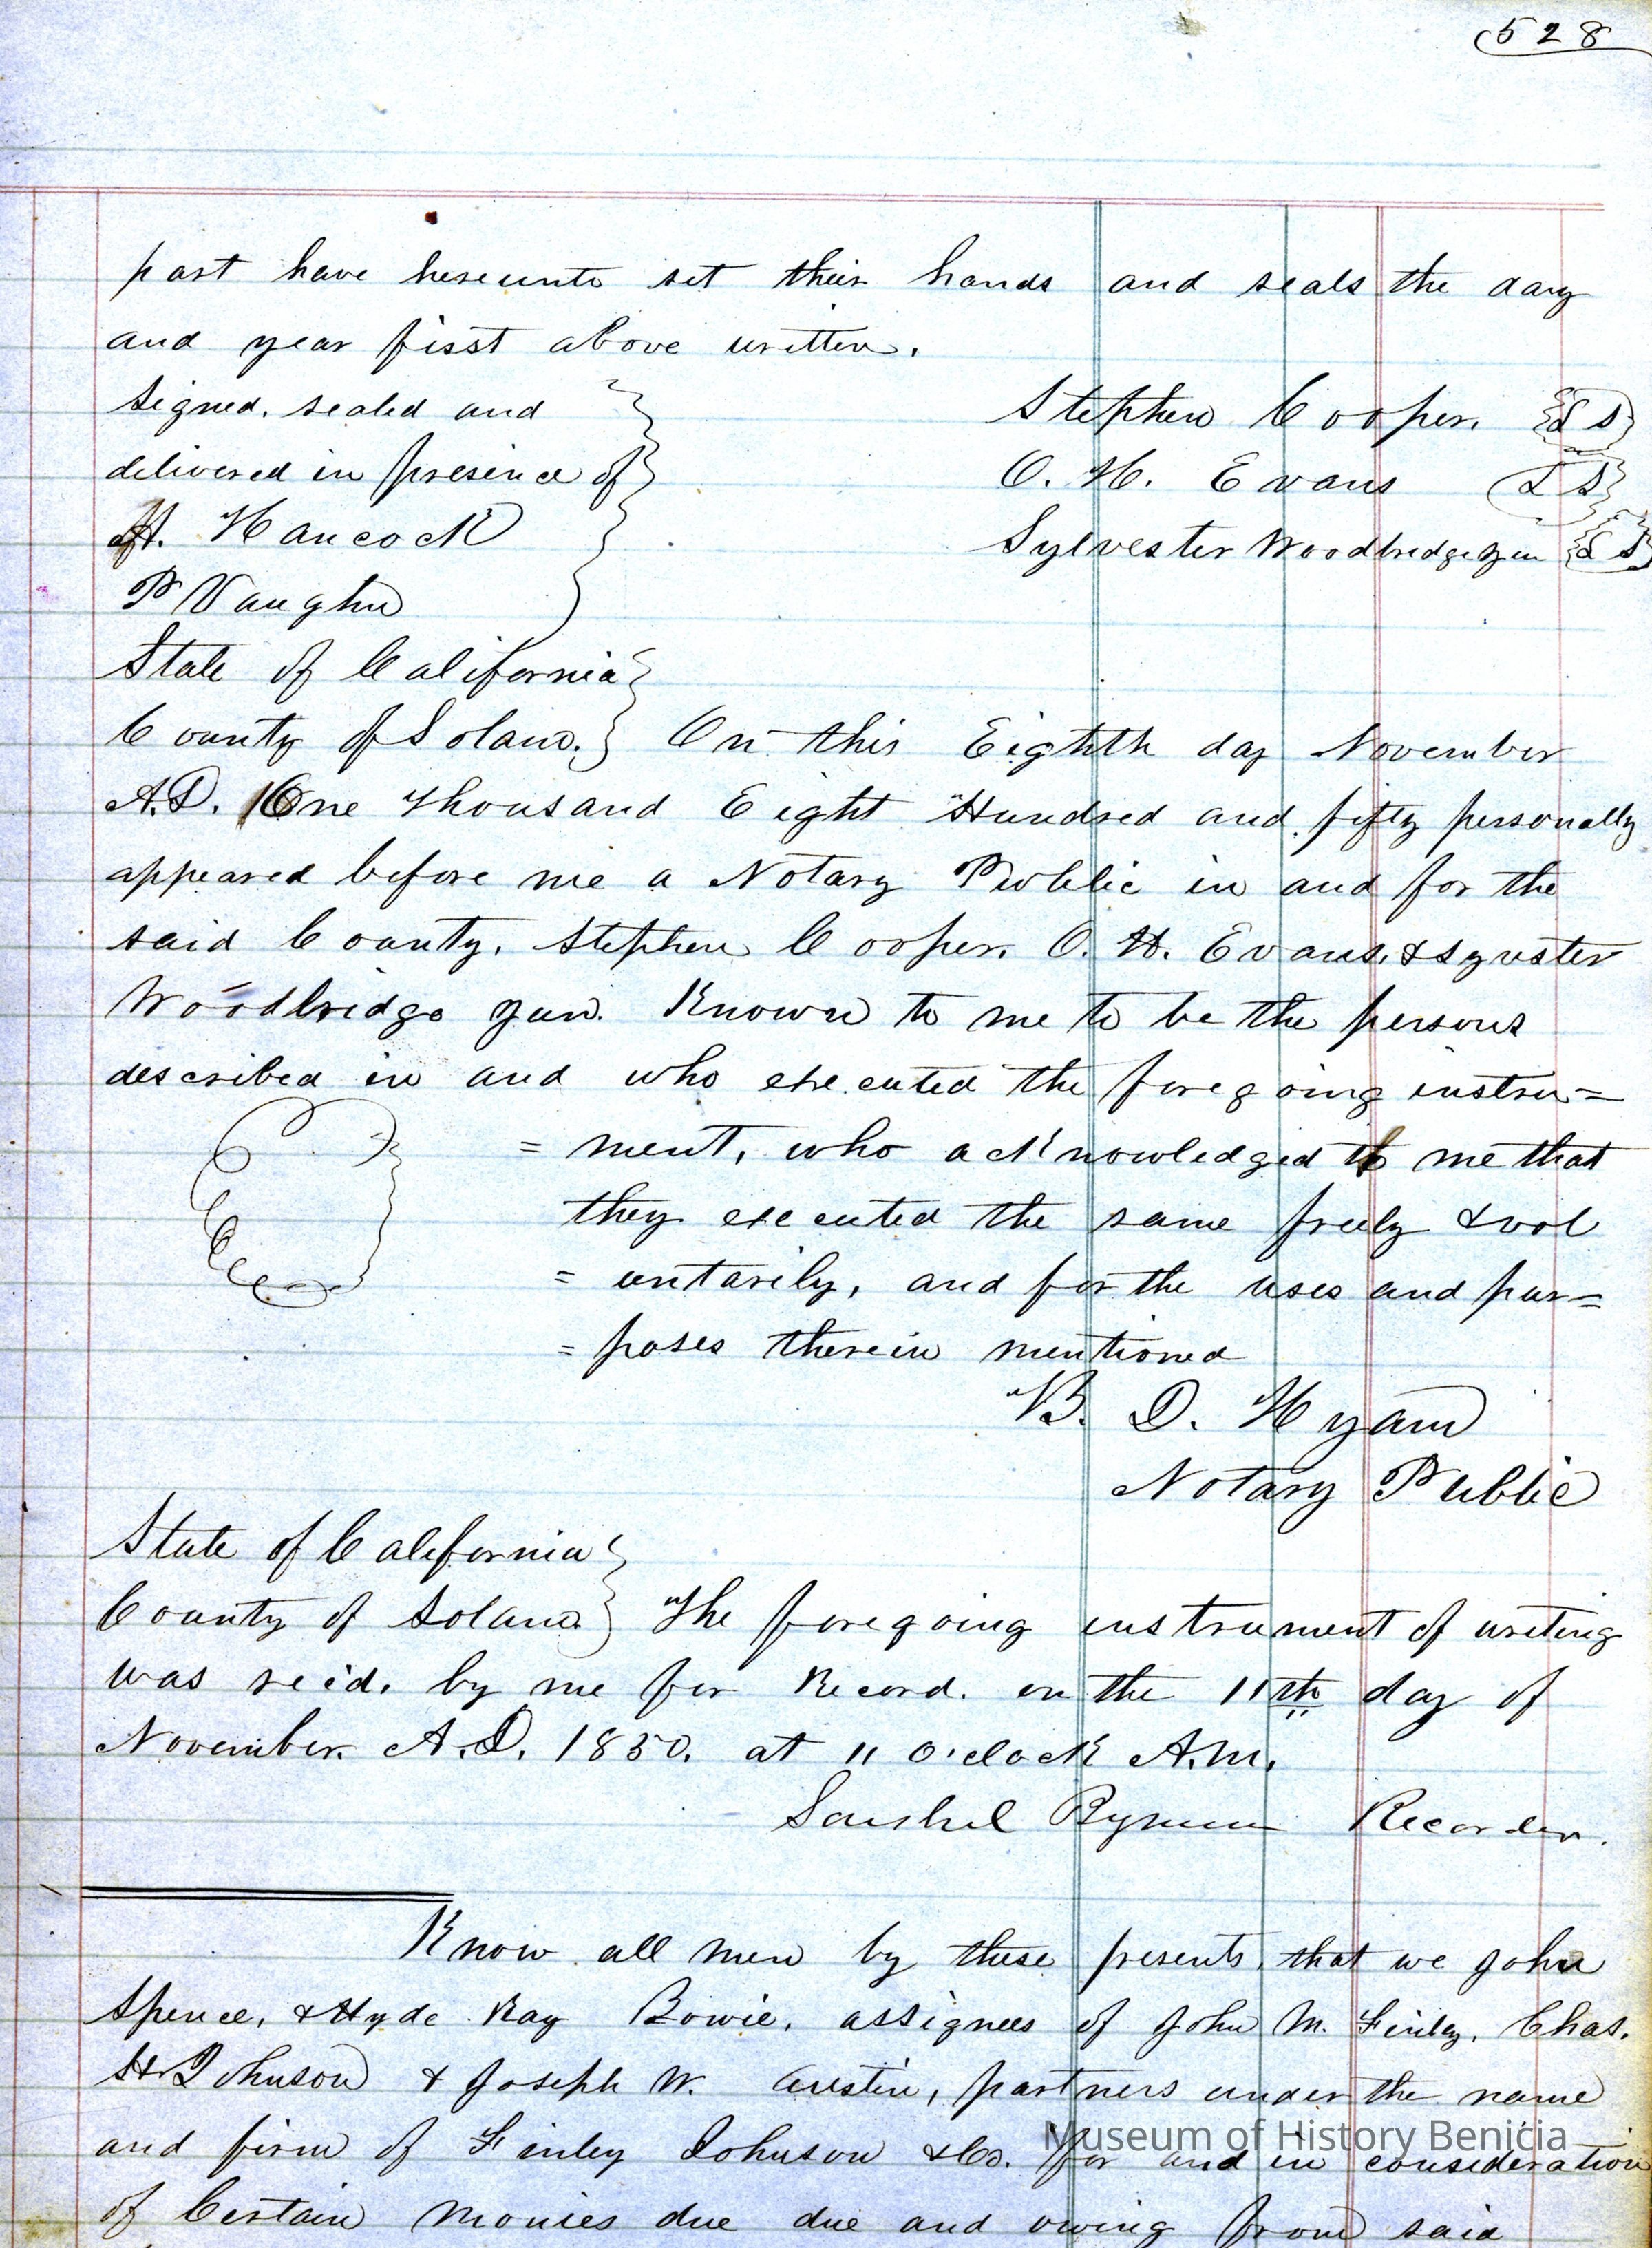 528
part have hereunto set their hands and seals the day
and year first above written.
Signed, sealed and
delivered in presence of
H. Hancock
P Vaughn
Stephen Cooper. L S
O. H. Evans L S
Sylvester Woodbridge Jun L S
State of California
County of Solano. On this Eighth day November
A.D. One Thousand Eight Hundred and fifty personally
appeared before me a Notary Public in and for the
said County, Stephen Cooper. O. H. Evans, & Syvester
Woodbridge Jun. Known to me to be the persons
described in and who executed the foregoing instru=
= ment, who acknowledged to me that
they executed the same freely & vol
= untarily, and for the uses and pur=
= poses therein mentioned
B. D. Hyam
Notary Public
State of California
County of Solano The foregoing instrument of writing
was recd. by me for Record. on the 11th day of
November. A.D. 1850. at 11 O'clock A.M.
Bynum Recorder.
Know all men by these presents, that we John
Spence, & Hyde Ray Bowie, assignees of John M. Finley, Chas.
H Johnson & Joseph W. Austin, partners under the name
and firm of Finley Johnson & Co. for and in consideration
of Certain Monies due due and owing from said
Museum of History Benicia